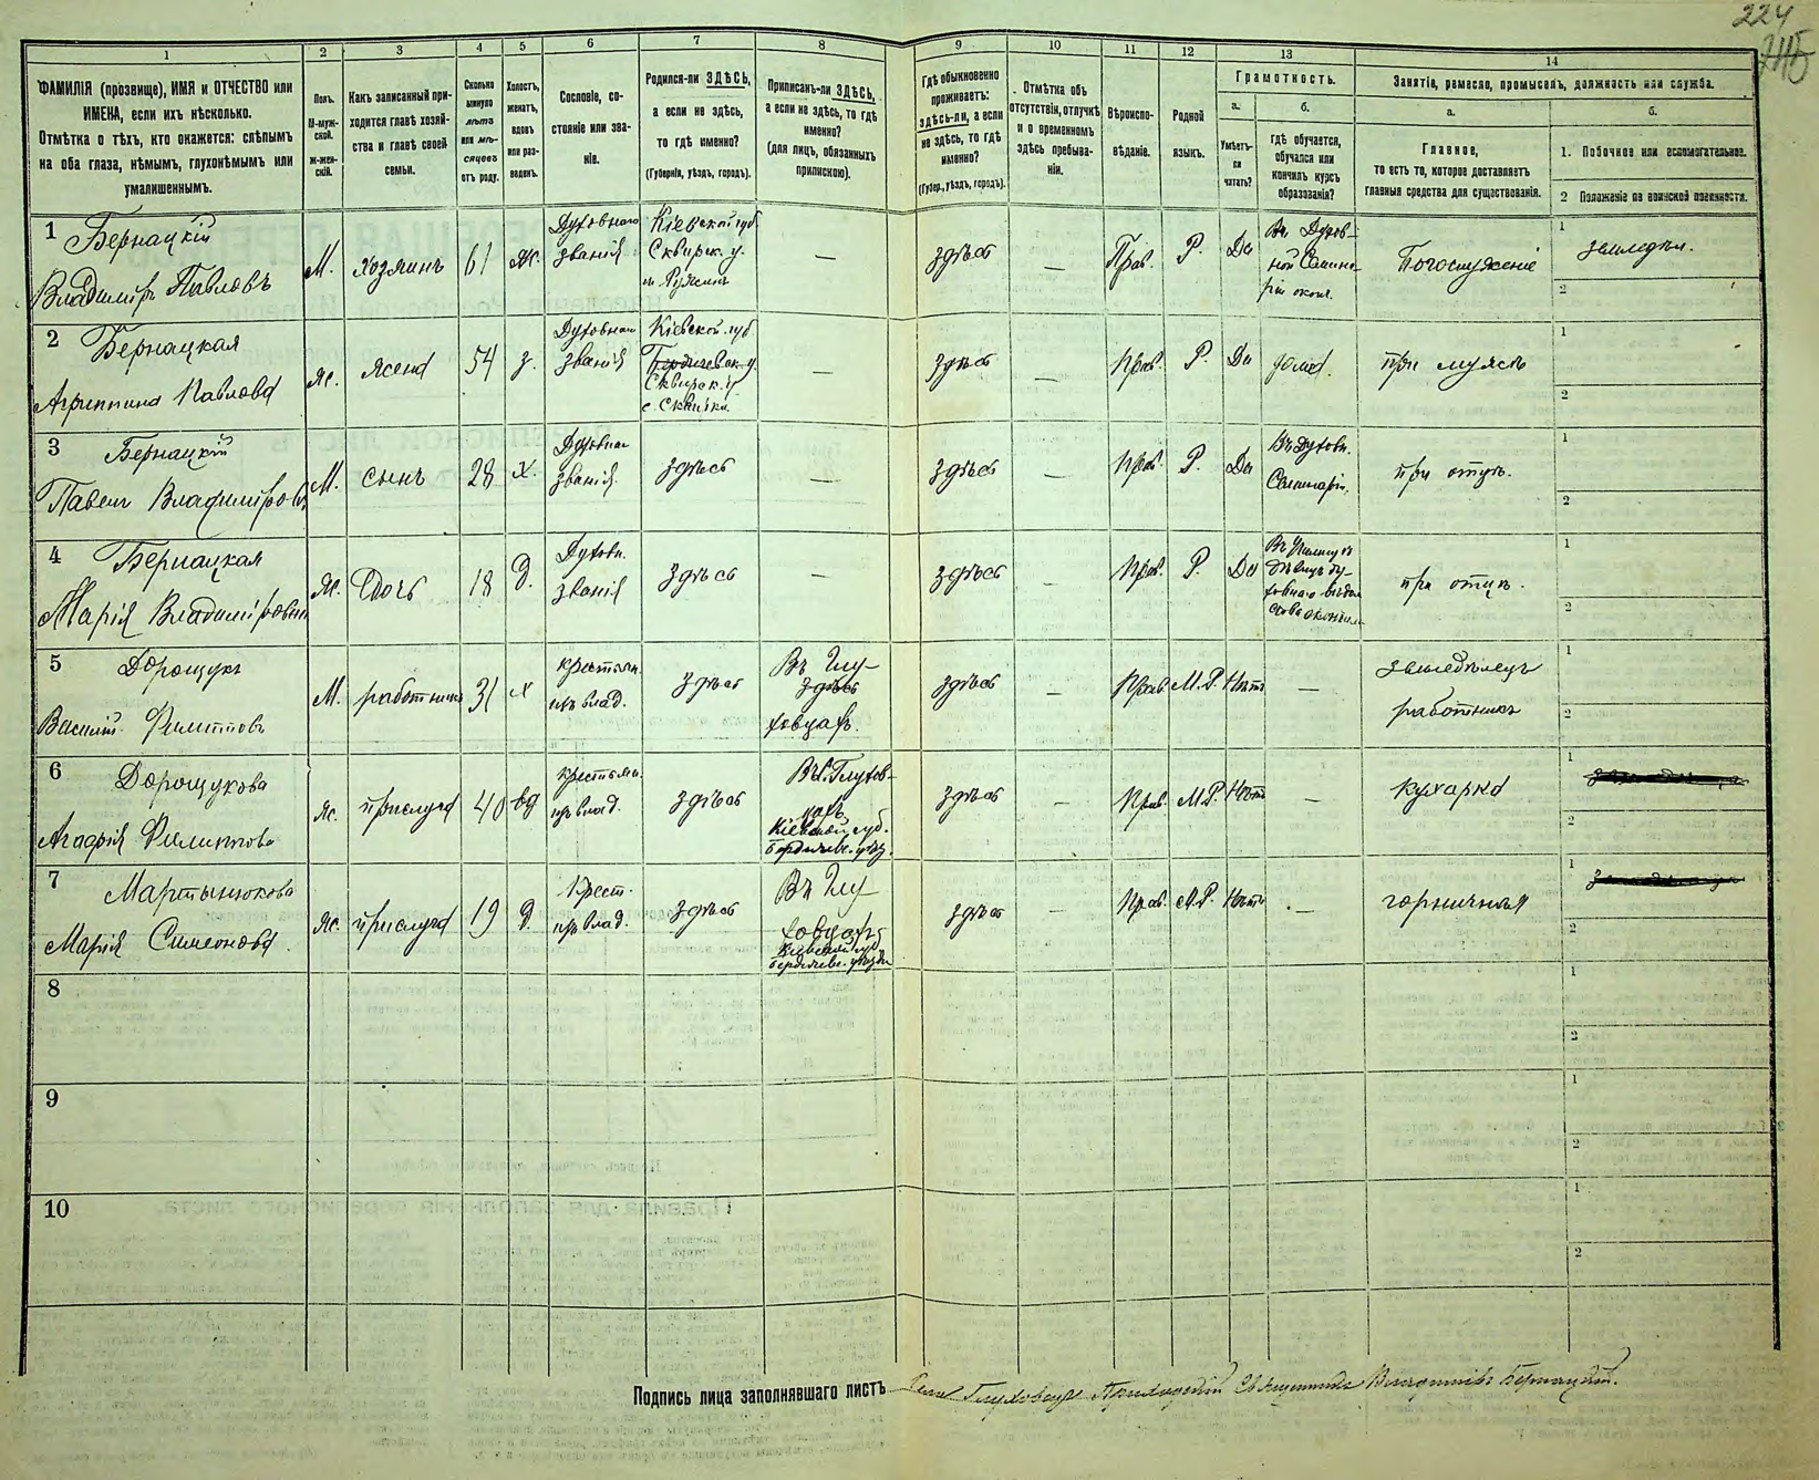 224
1
2
3
4
5
6
7
8
9
10
11
12
13
14
ФАМИЛІЯ (прозвище), ИМЯ и ОТЧЕСТВО или
ИМЕНА, если ихъ нѣсколько.
Отмѣтка о тѣхъ, кто окажется: слѣпымъ
на оба глаза, нѣмымъ, глухонѣмымъ или
умалишеннымъ.
Полъ.
М-муж-
ской.
ж-жен-
скій.
Какъ записанный при-
ходится главѣ хозяй-
ства и главѣ своей
семьи.
Сколько
минуло
лѣтъ
или мѣ-
сяцевъ
отъ роду.
Холостъ,
женатъ,
вдовъ
или раз-
веденъ.
Сословіе, со-
стояніе или зва-
ніе.
Родился-ли ЗДѢСЬ,
а если не здѣсь,
то гдѣ именно?
(Губернія, уѣздъ, городъ).
Приписанъ-ли ЗДѢСЬ,
а если не здѣсь, то гдѣ
именно?
(для лицъ, обязанныхъ
припискою).
Гдѣ обыкновенно
проживаетъ:
здѣсь-ли, а если
не здѣсь, то гдѣ
именно?
(Губер., уѣздъ, городъ).
Отмѣтка объ
отсутствіи, отлучкѣ
и о временномъ
здѣсь пребыва-
ніи.
Вѣроиспо-
вѣданіе.
Родной
языкъ.
Грамотность.
а.
Умѣетъ-
ли
читать?
б.
Гдѣ обучается,
обучался или
кончилъ курсъ
образованія?
Занятіе, ремесло, промыселъ, должность или служба.
а.
Главное,
то есть то, которое доставляетъ
главныя средства для существованія.
б.
1. Побочное или вспомогательное.
2 Положеніе по воинской повинности.
1 Бернацкій
Владиміръ Павловъ
М.
хозяинъ
61
ж.
Духовнаго
званія
Кіевской губ
Сквирск. у.
м. Ружинъ
—
здѣсь
—
Прав.
Р.
Да
Въ Духов-
ной Семина-
ріи оконч.
Богослуженіе
1 земледѣл.
2
2 Бернацкая
Агриппина Павлова
Ж.
жена
54
з.
Духовнаго
званія
Кіевской губ
Бердичевск. у.
Сквирск. у
—
здѣсь
—
Прав.
Р.
Да
дома.
при мужѣ
1
2
3 Бернацкій
Павелъ Владиміровъ
М.
сынъ
28
х.
Духовнаг
званія.
здѣсь
—
здѣсь
—
Прав.
Р.
Да
Въ Духовн.
Семинаріи.
при отцѣ.
1
2
4 Бернацкая
Марія Владимірова
Ж.
Дочь
18
д.
Духовн.
званія
здѣсь
—
здѣсь
—
Прав.
Р.
Да
Въ Училищѣ
дѣвицъ ду-
ховнаго вѣдом
ства окончила
при отцѣ.
1
2
5 Дорощукъ
Василій Филипповъ
М.
работникъ
31
х
крестьян.
изъ влад.
здѣсь
Въ Глу-
здѣсь
ховцахъ.
здѣсь
—
Прав.
М.Р.
Нѣтъ
—
земледѣлецъ
работникъ
1
2
6 Дорощукова
Агафія Филиппова
Ж.
прислуга
40
вд
крестьян.
изъ влад.
здѣсь
Въ с. Глухов-
цахъ
Кіевской губ.
Бердичев. уѣзд.
здѣсь
—
Прав.
М.Р.
Нѣтъ
—
кухарка
1
2
7 Мартынюкова
Марія Симеонова.
Ж.
прислуга
19
д.
Крест.
изъ влад.
здѣсь
Въ Глу
ховцахъ
Кіевской губ.
Бердичев. уѣзда
здѣсь
—
Прав.
М.Р.
Нѣтъ
—
горничная
1
2
8
1
2
9
1
2
10
1
2
Подпись лица заполнявшаго листъ Села Глуховецъ Приходскій Священникъ Владиміръ Бернацкій.